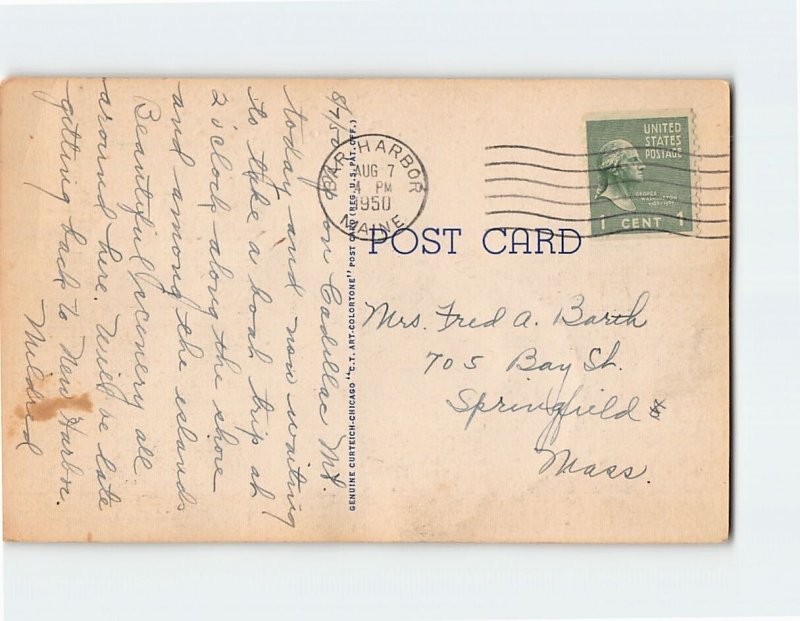 8/7/50 Up on Cadillac Mt.
today and now waiting
to take a boat trip at
2 o'clock along the shore
and among the islands
Beautiful scenery all
around here. Will be late
getting back to New Harbor.
Mildred
GENUINE CURTEICH-CHICAGO "C.T. ART-COLORTONE" POST CARD (REG. U.S. PAT. OFF.)
BAR HARBOR
AUG 7
4 PM
1950
MAINE
UNITED
STATES
POSTAGE
GEORGE
WASHINGTON
1 CENT 1
POST CARD
Mrs. Fred A. Barth
705 Bay St.
Springfield
Mass.